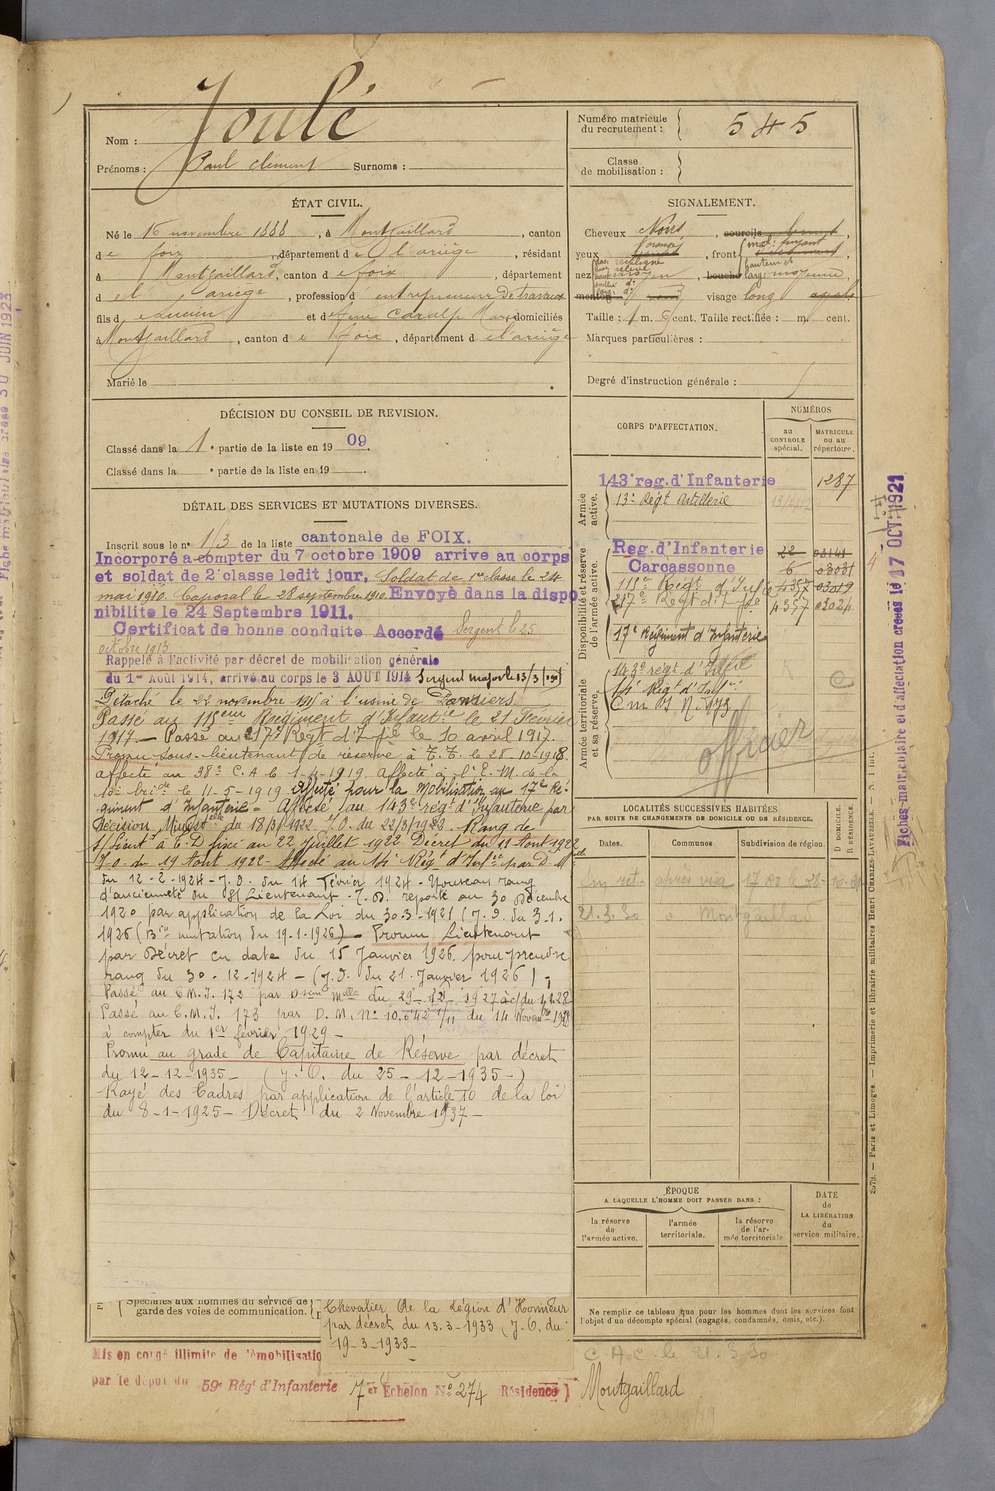 Nom : Joulé
Prénoms : Paul Clément Surnoms :
Numéro matricule du recrutement : 545
Classe de mobilisation :
ÉTAT CIVIL.
Né le 16 novembre 1888, à Montgaillard, canton
de foix, département de l'ariège, résidant
à Montgaillard, canton de foix, département
de l'ariège, profession d'entrepreneur de travaux
fils de et de domiciliés
à Montgaillard, canton de foix, département de l'ariège
Marié le
SIGNALEMENT.
Cheveux Noirs, sourcils
yeux orangé, front
nez moyen, bouche moyenne,
menton rond visage long
Taille : 1 m. cent. Taille rectifiée : m. cent.
Marques particulières :
Degré d'instruction générale :
DÉCISION DU CONSEIL DE REVISION.
Classé dans la 1e partie de la liste en 1909.
Classé dans la e partie de la liste en 19
DÉTAIL DES SERVICES ET MUTATIONS DIVERSES.
Inscrit sous le n° 113 de la liste cantonale de FOIX.
Incorporé à compter du 7 octobre 1909 arrive au corps
et soldat de 2e classe ledit jour. Soldat de 1re classe le 24
mai 1910. Caporal le 28 septembre 1910. Envoyé dans la dispo
nibilité le 24 Septembre 1911.
Certificat de bonne conduite Accordé Sergent le 25
octobre 1913
Rappelé à l'activité par décret de mobilisation générale
du 1er Août 1914, arrivé au corps le 3 AOUT 1914 Sergent major le 13/3/
Détaché le 22 novembre 1915 à l'usine de
Passé au 118ème Régiment d'Infantie le 21 Février
1917. — Passé au 217e Régt d'Infie le 10 avril 1917.
Promu Sous-lieutenant de réserve à T.T. le 28-10-1918
affecté au 38e C.A le 1-4-1919. affecté à l'E.M. de la
le 11-5-1919 Affecté pour la mobilisation au 17e Ré-
giment d'Infanterie - Affecté au 143e régt d'Infanterie par
Décision Minist du 18/3/1922 J.O. du 22/3/1922. Rang de
S/Lieut à T.D fixé au 22 Juillet 1922 Décret du 11 Aout 1922
J.O. du 19 Aout 1922 - Affecté au 14e Régt d'Infie par D.M
du 12-2-1924 - J.O. du 14 Février 1924 - Nouveau rang
d'ancienneté du S/Lieutenant - J.O. reporté au 30 Décembre
1920 par application de la Loi du 30-3-1921 (J.O. du 3.1.
1926 (Bon mutation du 19-1-1926) - Promu Lieutenant
par Décret en date du 15 Janvier 1926 pour prendre
rang du 30-12-1924 - (J.O. du 21 Janvier 1926) ;
Passé au C.M.I. 172 par Dsion Mlle du 29-12-1927 à c/ du 1.1.28
Passé au C.M.I. 173 par D.M. N° 10.642 1/11 du 14 Novembre 1928
à compter du 1er février 1929 -
Promu au grade de Capitaine de Réserve par décret
du 12-12-1935 - (J.O. du 25-12-1935-)
Rayé des Cadres par application de l'article 10 de la loi
du 8-1-1925 - Décret du 2 Novembre 1937 -
CORPS D'AFFECTATION.
NUMÉROS
au CONTROLE spécial.
MATRICULE ou au répertoire.
Armée active.
143e reg. d'Infanterie 1287
13e Régt Artillerie
Disponibilité et réserve de l'armée active.
Reg. d'Infanterie 22
Carcassonne 6
118e Régt d'Infie 4357 03019
217e Régt d'Infie 4357 03024
17e Régiment d'Infanterie
Armée territoriale et sa réserve.
143e regt d'Infie
14e Régt d'Infie
C M I N° 173
officier
LOCALITÉS SUCCESSIVES HABITÉES
PAR SUITE DE CHANGEMENTS DE DOMICILE OU DE RÉSIDENCE.
Dates. Communes Subdivision de région. D DOMICILE. R RÉSIDENCE.
21.3.30 à Montgaillard
ÉPOQUE
A LAQUELLE L'HOMME DOIT PASSER DANS :
la réserve de l'armée active.
l'armée territoriale.
la réserve de l'armée territoriale
DATE de LA LIBÉRATION du service militaire.
Ne remplir ce tableau que pour les hommes dont les services font
l'objet d'un décompte spécial (engagés, condamnés, omis, etc.).
Spéciales aux hommes du service de
garde des voies de communication.
Chevalier de la Légion d'Honneur
par décret du 13-3-1933 (J.O. du
19-3-1933-
Mis en congé illimité de démobilisatio
par le dépôt du 59e Régt d'Infanterie 7er Echelon N° 274 Résidence)
C.A.C. le 21.3.30
Montgaillard
Fiches matriculaire et d'affectation créées le 17 OCT. 1921
2579. — Paris et Limoges. — Imprimerie et librairie militaires Henri CHARLES-LAVAUZELLE.
30 JUIN 1923